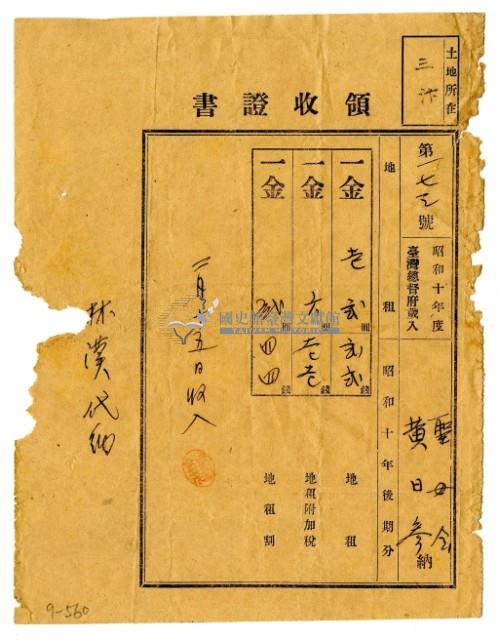 土地所在
三汴
領收證書
第一七三號
昭和十年度
臺灣總督府歲入
聖母會
黃日參納
地租
昭和十年後期分
一金 壱弍圓弍弍錢 地租
一金 六圓壱壱錢 地租附加稅
一金 弍圓四四錢 地租割
二月十五日收入
林漢代納
國史館臺灣文獻館
9-560